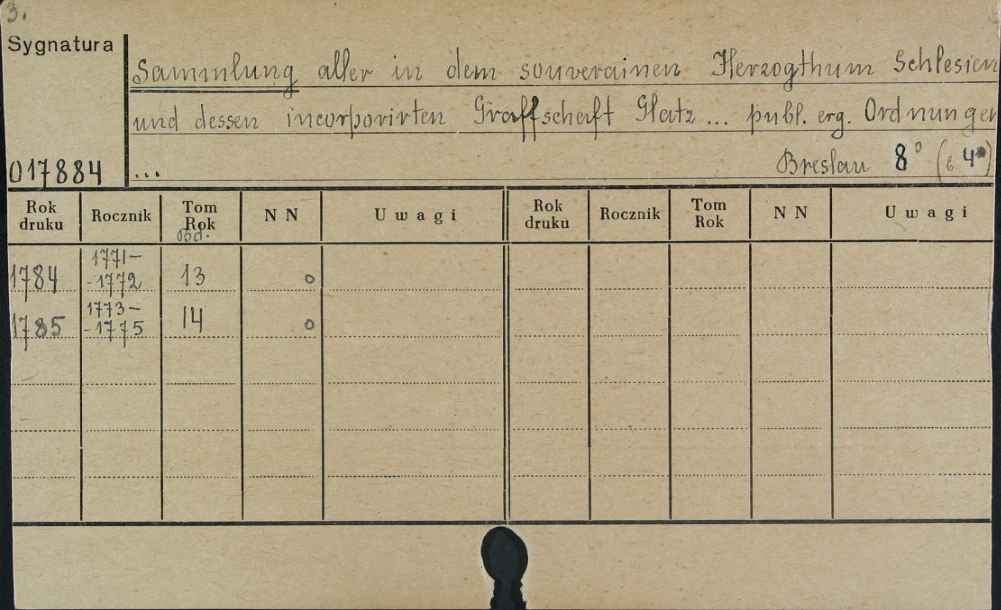 3.
Sygnatura
Sammlung aller in dem souverainen Herzogthum Schlesien
und dessen incorporirten Graffschaft Glatz ... publ. erg. Ordnungen
017884 ... Breslau 8° ( 4°)
Rok druku Rocznik Tom Rok N N Uwagi Rok druku Rocznik Tom Rok N N Uwagi
1784 1771- -1772 13 o
1785 1773- -1775 14 o